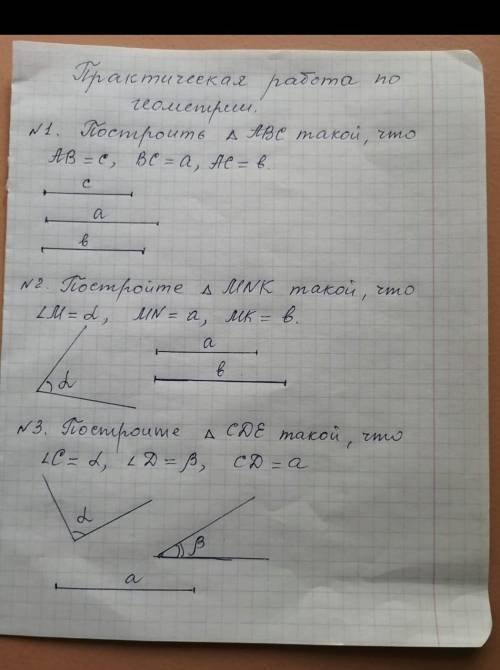 Практическая работа по
геометрии.
№1. Построить △ АВС такой, что
АВ = с, ВС = а, АС = в.
с
а
в
№2. Постройте △ MNK такой, что
∠M = α, MN = a, MK = в.
а
α
в
№3. Постройте △ CDE такой, что
∠C = α, ∠D = β, CD = a
α
β
а